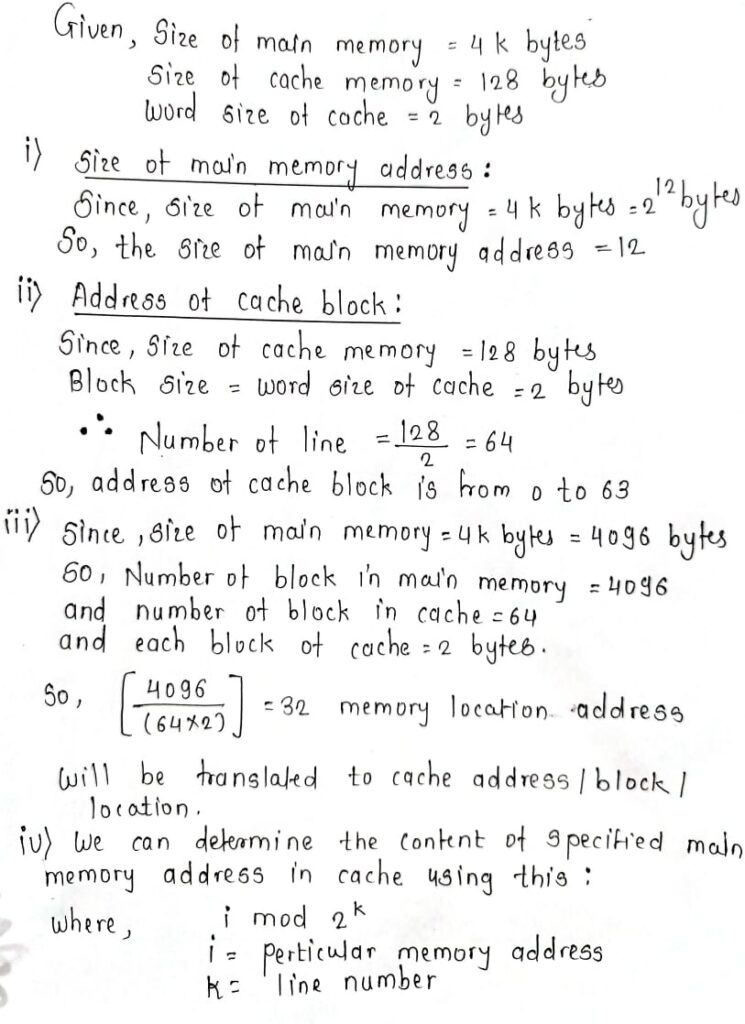 Given, Size of main memory = 4 k bytes
Size of cache memory = 128 bytes
Word size of cache = 2 bytes
i) Size of main memory address :
Since, size of main memory = 4 k bytes = 2^12 bytes
So, the size of main memory address = 12
ii) Address of cache block :
Since, Size of cache memory = 128 bytes
Block size = word size of cache = 2 bytes
∴ Number of line = 128/2 = 64
So, address of cache block is from 0 to 63
iii) Since, size of main memory = 4k bytes = 4096 bytes
So, Number of block in main memory = 4096
and number of block in cache = 64
and each block of cache = 2 bytes.
So, [4096/(64×2)] = 32 memory location address
will be translated to cache address / block /
location.
iv) We can determine the content of specified main
memory address in cache using this :
where, i mod 2^k
i = perticular memory address
k = line number